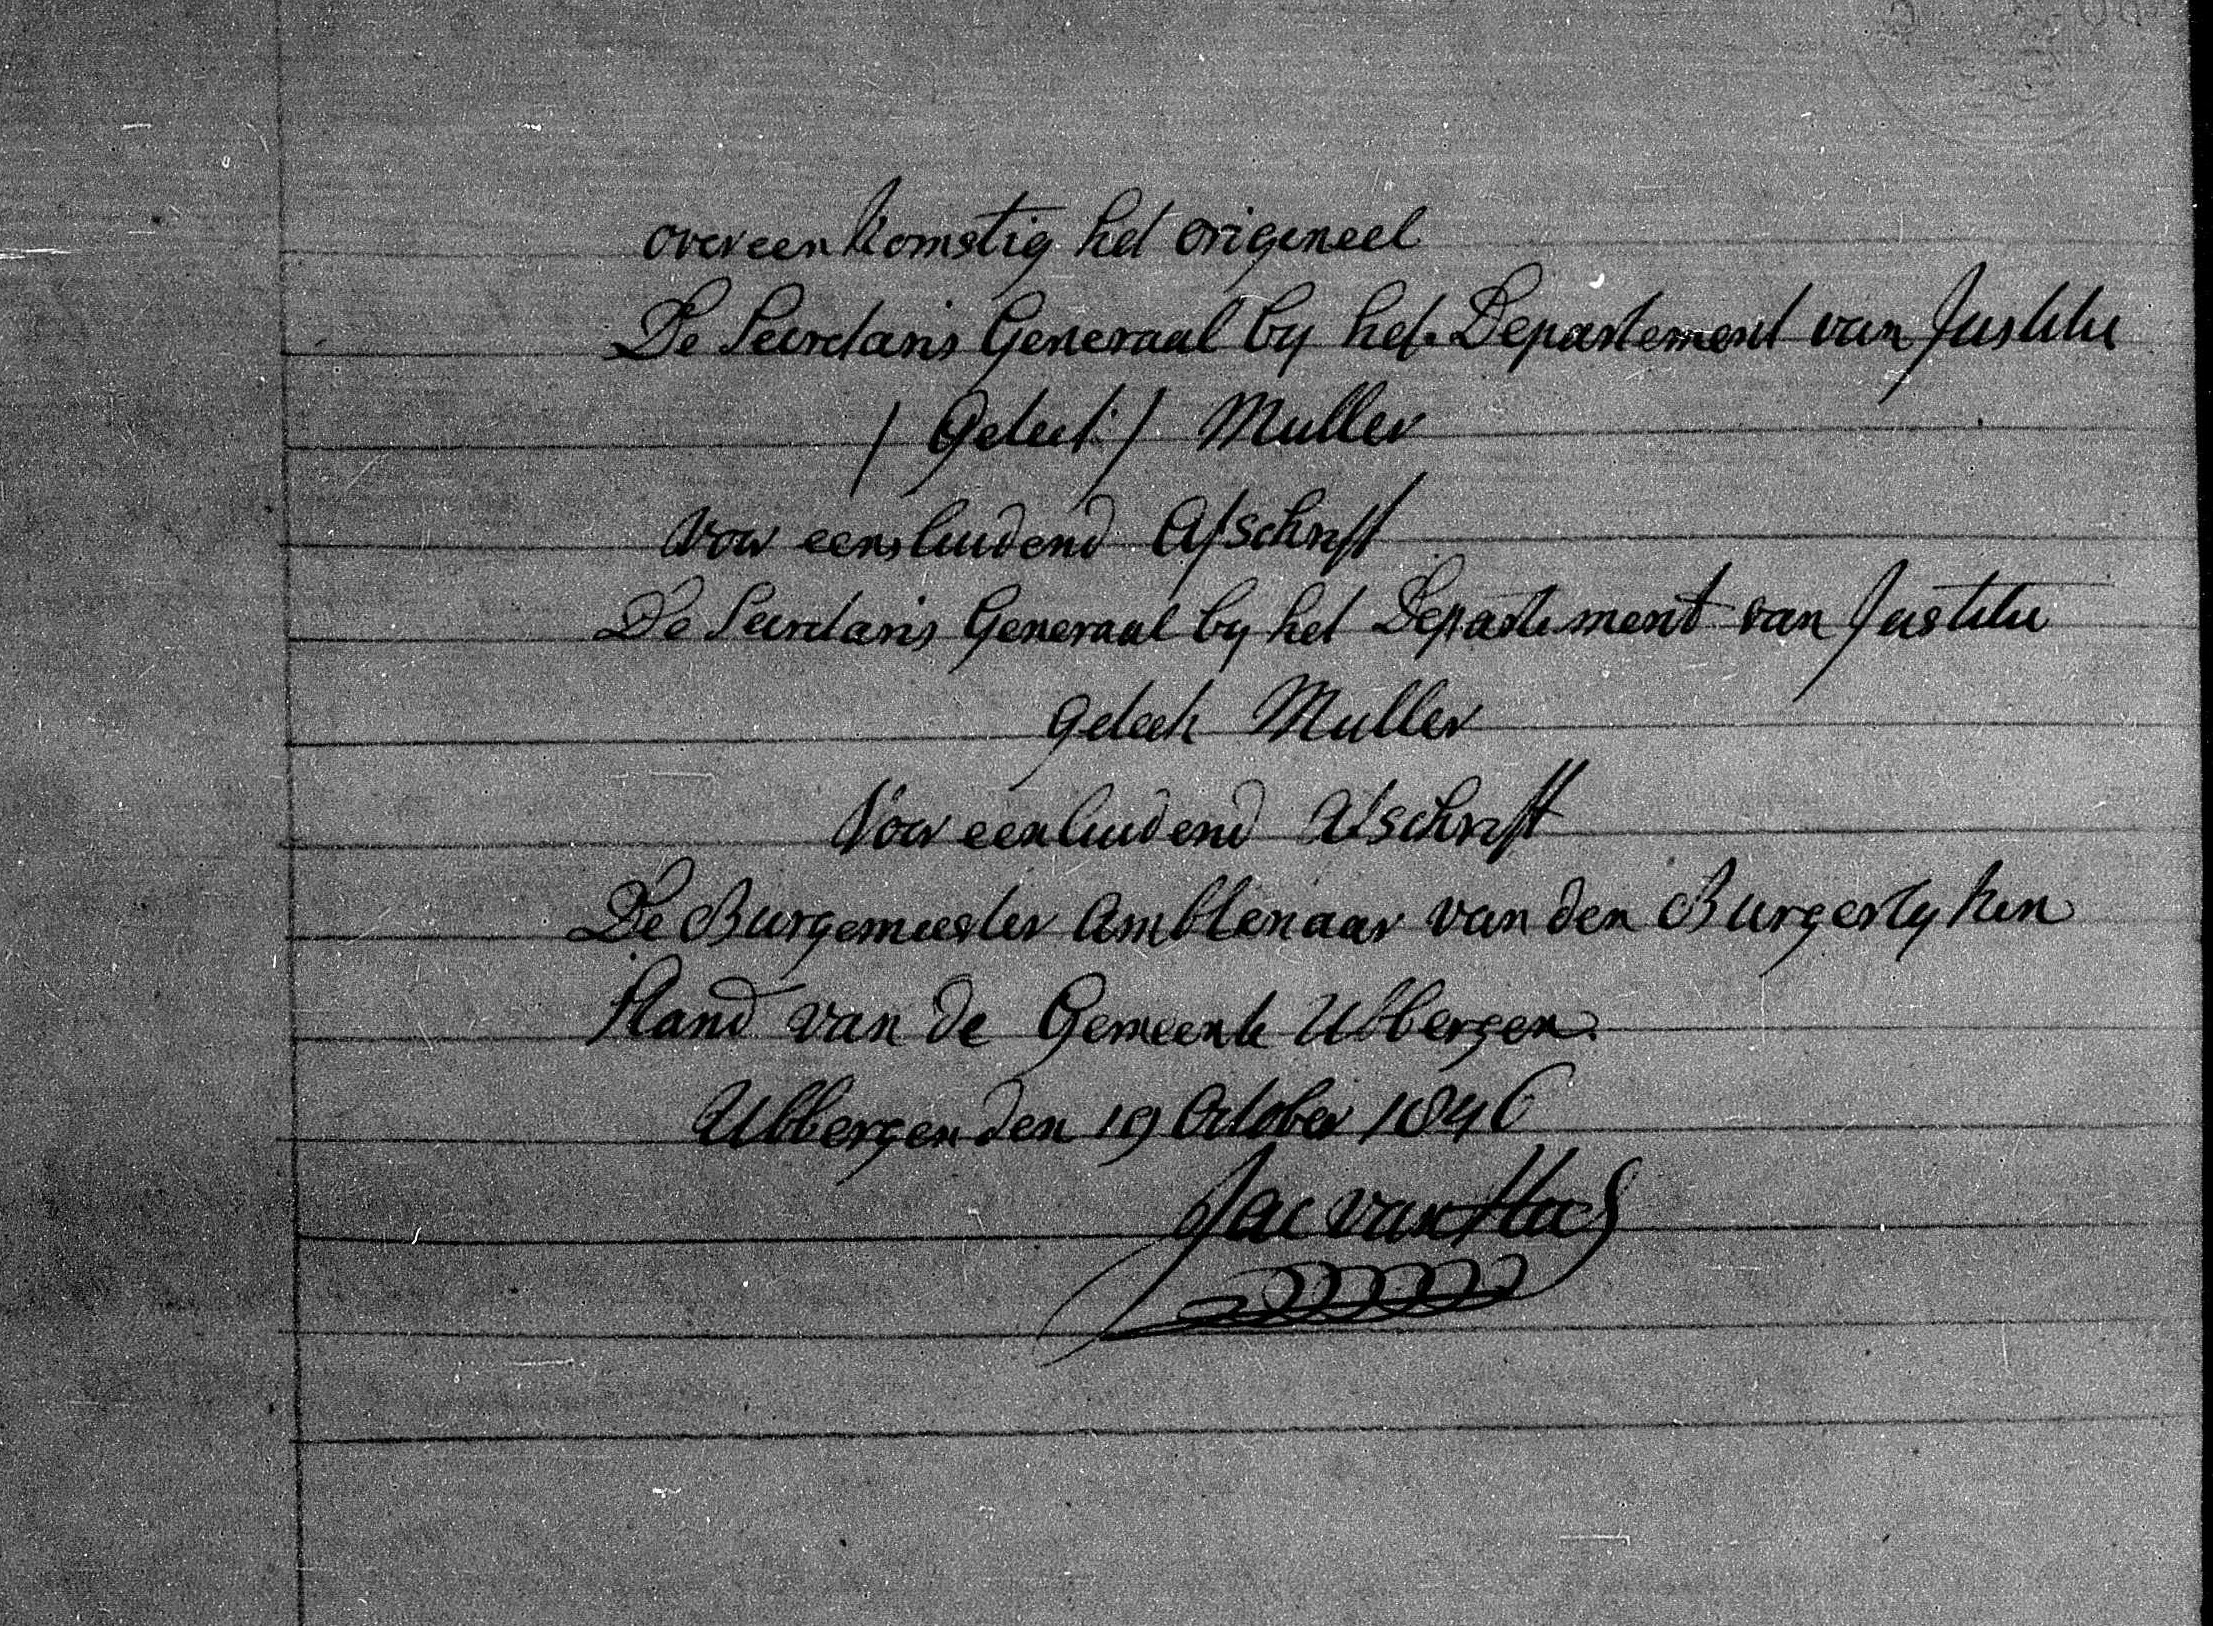 overeenkomstig het origeneel
De Secretaris Generaal by het Departement van Justitie
/ Geteek: / Muller
voor eensluidend Afschrift
De Secretaris Generaal by het Departement van Justitie
geteek Muller
Voor eenluidend Afschrift
De Burgemeester Ambtenaar van den Burgerlyken
Stand van de Gemeente Ubbergen.
Ubbergen den 19 October 1846
Jac van